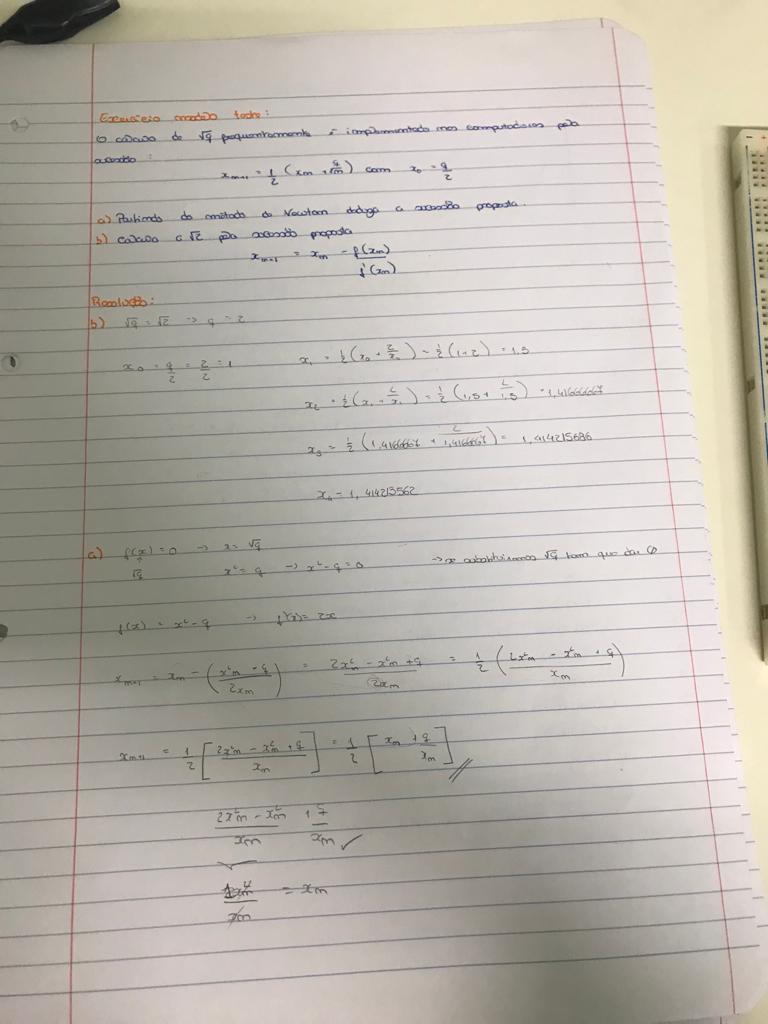 Exercício modelo teste:
O cálculo de √q frequentemente é implementado nos computadores pela
sucessão:
x_{m+1} = 1/2 (x_m + q/x_m) com x_0 = q/2
a) Partindo do método de Newton deduza a sucessão proposta.
b) Calcule a √2 pela sucessão proposta
x_{m+1} = x_m - f(x_m)/f'(x_m)
Resolução:
b) √q = √2 → q = 2
x_0 = q/2 = 2/2 = 1 x_1 = 1/2 (x_0 + 2/x_0) = 1/2 (1+2) = 1,5
x_2 = 1/2 (x_1 + 2/x_1) = 1/2 (1,5 + 2/1,5) = 1,41666667
x_3 = 1/2 (1,4166667 + 2/1,4166667) = 1,414215686
x_4 = 1,414213562
a) f(x) = 0 → x = √q
√q x² = q → x² - q = 0 → x substituirmos √q tem que dar 0
f(x) = x² - q → f'(x) = 2x
x_{m+1} = x_m - (x²_m - q / 2x_m) = 2x²_m - x²_m + q / 2x_m = 1/2 (2x²_m - x²_m + q / x_m)
x_{m+1} = 1/2 [2x²_m - x²_m + q / x_m] = 1/2 [x_m + q/x_m]
2x²_m - x²_m / x_m + q/x_m ✓
x_m = x_m